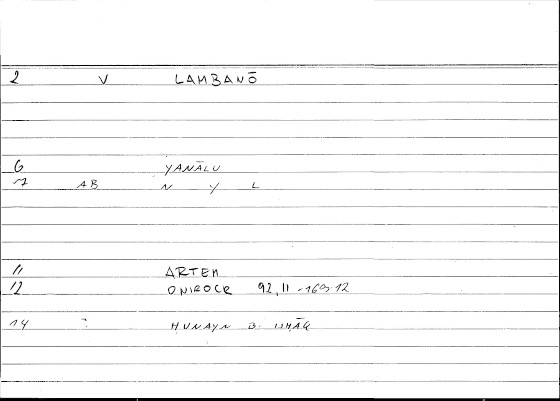 2 V LAMBANŌ
6 YANĀLU
7 AB N Y L
11 ARTEM
12 ONIROCR 92,11 - 169.12
14 : HUNAYN B. ISHĀQ